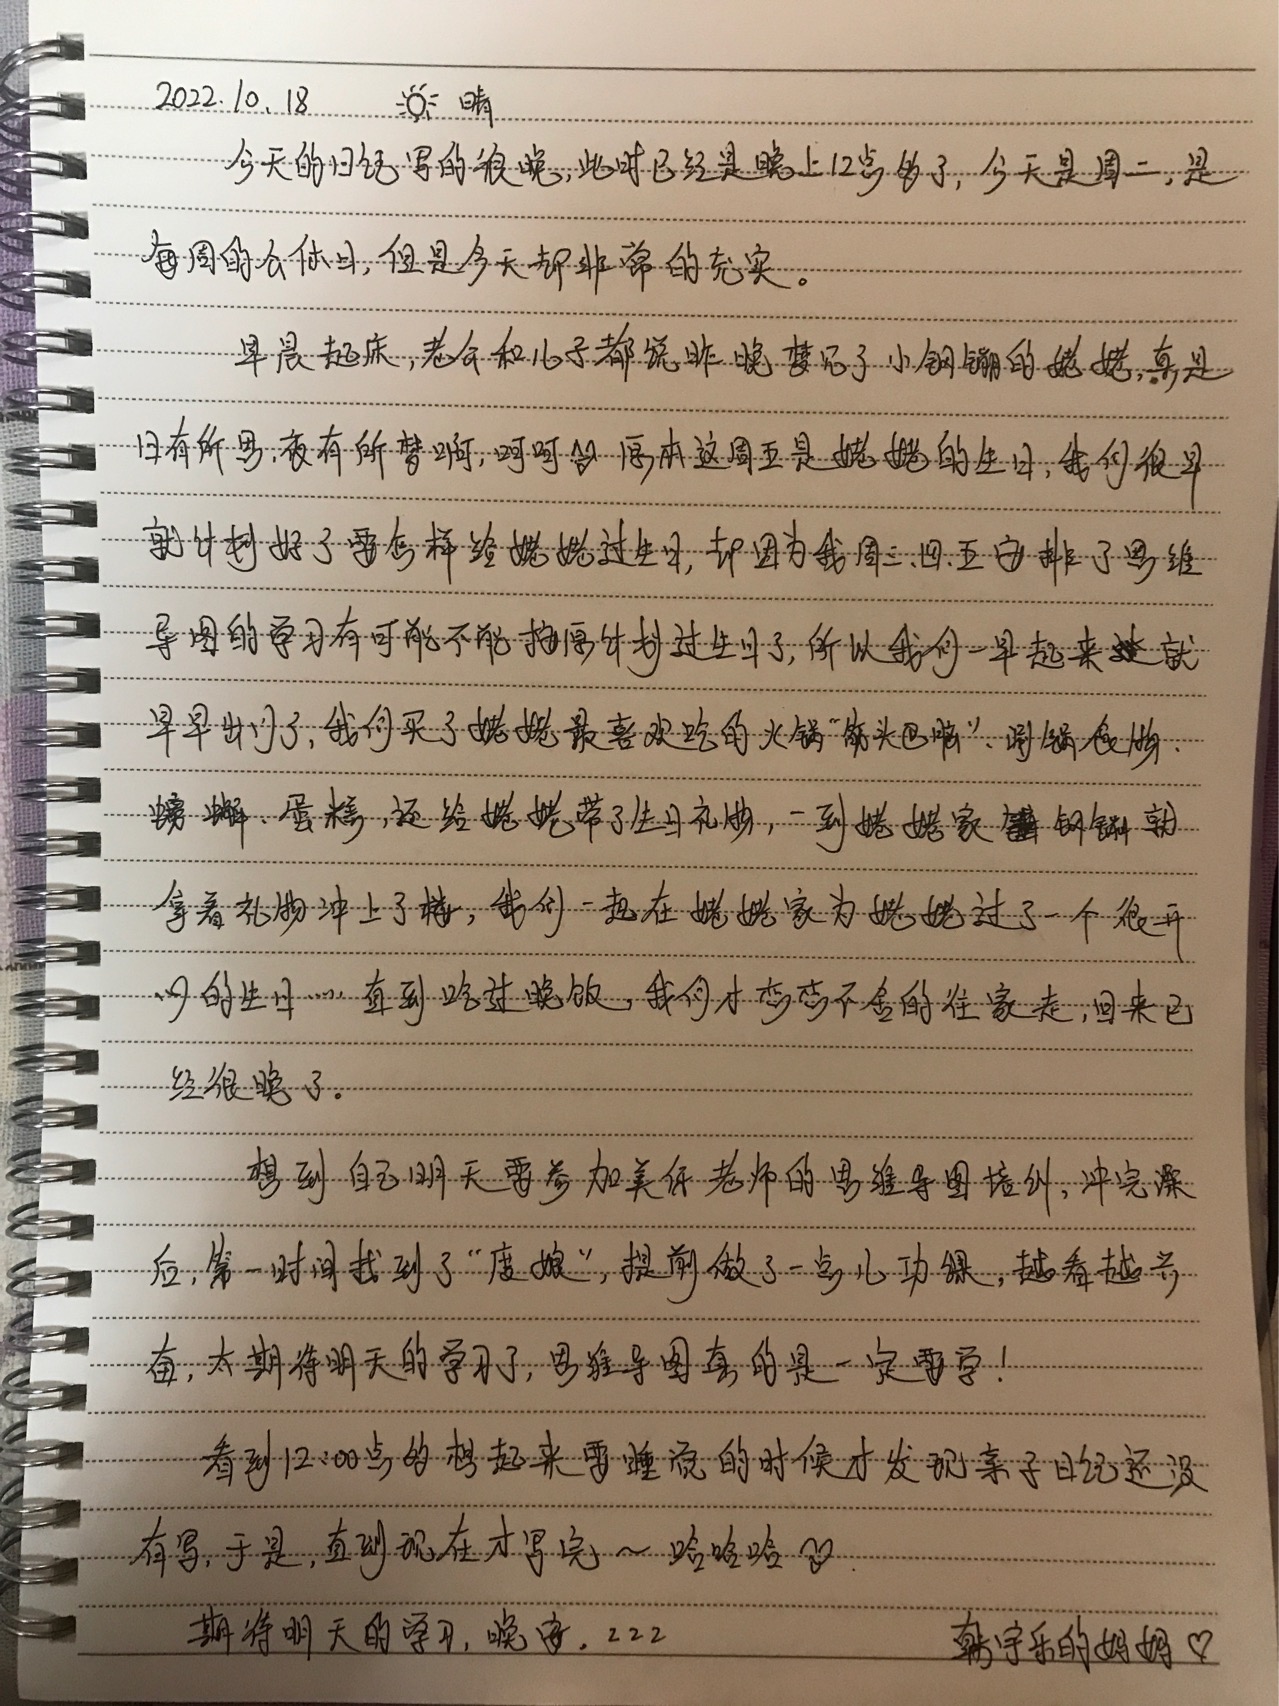 2022.10.18 晴
今天的日记写的很晚,此时已经是晚上12点多了,今天是周二,是
每周的公休日,但是今天却非常的充实。
早晨起床,老公和儿子都说昨晚梦见了小钢镚的姥姥,真是
日有所思,夜有所梦啊,呵呵 原本这周五是姥姥的生日,我们很早
就计划好了要怎样给姥姥过生日,却因为我周三.四.五安排了思维
导图的学习有可能不能按原计划过生日了,所以我们一早起来就
早早出门了,我们买了姥姥最喜欢吃的火锅“筋头巴脑”、涮锅食物、
螃蟹、蛋糕,还给姥姥带了生日礼物,一到姥姥家钢镚就
拿着礼物冲上了楼,我们一起在姥姥家为姥姥过了一个很开
心的生日…… 直到吃过晚饭,我们才恋恋不舍的往家走,回来已
经很晚了。
想到自己明天要参加美仔老师的思维导图培训,冲完澡
后,第一时间找到了“度娘”,提前做了一点儿功课,越看越兴
奋,太期待明天的学习了,思维导图真的是一定要学!
看到12:00点多想起来要睡觉的时候才发现亲子日记还没
有写,于是,直到现在才写完~哈哈哈
期待明天的学习,晚安.zzz 韩宇乐的妈妈♡